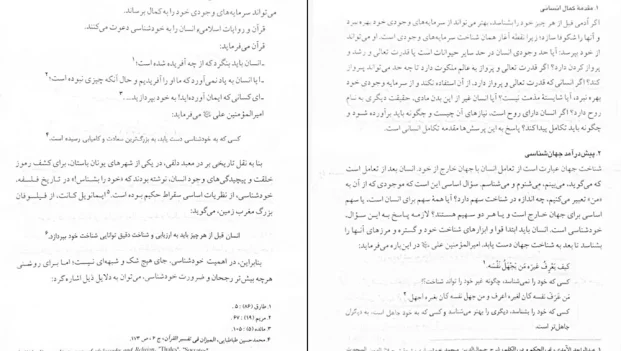 می‌تواند سرمایه‌های وجودی خود را به‌کمال برساند.
قرآن و روایات اسلامی انسان را به خودشناسی دعوت می‌کنند.
قرآن می‌فرماید:
ـ انسان باید بنگرد که از چه آفریده شده است؛¹
ـ آیا انسان به یاد نمی‌آورد که ما او را آفریدیم و حال آنکه چیزی نبوده است؛²
ـ ای کسانی که ایمان آورده‌اید! به خود بپردازید...³
امیرالمؤمنین علی می‌فرماید:
کسی که به خودشناسی دست یابد، به بزرگ‌ترین سعادت و کامیابی رسیده است.⁴
بنا به نقل تاریخی بر در معبد دلفی، در یکی از شهرهای یونان باستان، برای کشف رموز
خلقت و پیچیدگی‌های وجود انسان، نوشته بودند که «خود را بشناس!» در تاریخ فلسفه،
خودشناسی، از نظریات اساسی سقراط حکیم بوده است.⁵ ایمانوئل کانت، از فیلسوفان
بزرگ مغرب زمین، می‌گوید:
انسان قبل از هر چیز باید به ارزیابی و شناخت دقیق توانایی شناخت خود بپردازد.⁶
بنابراین، در اهمیت خودشناسی، جای هیچ شک و شبهه‌ای نیست؛ اما برای روشنی
هرچه بیش‌تر رجحان و ضرورت خودشناسی، می‌توان به دلایل ذیل اشاره کرد:
۱. طارق (۸۶): ۵.
۲. مریم (۱۹): ۶۷.
۳. مائده (۵): ۱۰۵.
۴. محمدحسین طباطبایی، المیزان فی تفسیر القرآن، ج ۶، ص ۱۷۳.
۱. مقدمهٔ کمال انسانی
اگر آدمی قبل از هر چیز خود را بشناسد، بهتر می‌تواند از سرمایه‌های وجودی خود بهره ببرد
و آنها را شکوفا سازد؛ زیرا نقطه آغاز همان شناخت سرمایه‌های وجودی است. او می‌تواند
از خود بپرسد: آیا حد وجودی انسان در حد سایر حیوانات است یا قدرت تعالی و رشد و
پرواز کردن دارد؟ اگر قدرت تعالی و پرواز به عالم ملکوت دارد تا چه حد می‌تواند پرواز
کند؟ اگر انسانی که قدرت تعالی و پرواز دارد، از آن استفاده نکند و از سرمایه وجودی خود
بهره نبرد، آیا شایستهٔ مذمت نیست؟ آیا انسان غیر از این بدن مادی، حقیقت دیگری به نام
روح دارد؟ اگر انسان دارای روح است، نیازهای آن چیست و چگونه باید برآورده شود و
چگونه باید تکامل پیدا کند؟ پاسخ به این پرسش‌ها مقدمه تکامل انسانی است.
۲. پیش‌درآمد جهان‌شناسی
شناخت جهان عبارت است از تعامل انسان با جهان خارج از خود. انسان بعد از تعامل است
که می‌گوید، می‌بینم، می‌شنوم و می‌شناسم. سؤال اساسی این است که موجودی که از آن به
«من» تعبیر می‌کنیم، چه اندازه در شناخت سهم دارد؟ آیا همهٔ سهم برای انسان است، یا سهم
اساسی برای جهان خارج است و یا هر دو سهیم هستند؟ لازمه پاسخ به این سؤال،
خودشناسی است. انسان باید ابتدا قوا و ابزارهای شناخت خود و گستره و مرزهای آنها را
بشناسد تا بعد به شناخت جهان دست یابد. امیرالمؤمنین علی در این باره می‌فرماید:
کیف یعرف غیره من یجهل نفسه.¹
کسی که خود را نمی‌شناسد، چگونه غیر خود را تواند شناخت؟!
من عرف نفسه کان لغیره اعرف و من جهل نفسه کان بغیره اجهل.²
کسی که خود را بشناسد، دیگری را بهتر می‌شناسد و کسی که به خود جاهل است، به دیگران
جاهل‌تر است.